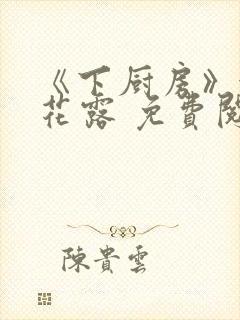 《下厨房》
花露 免費閱
陳貴雲